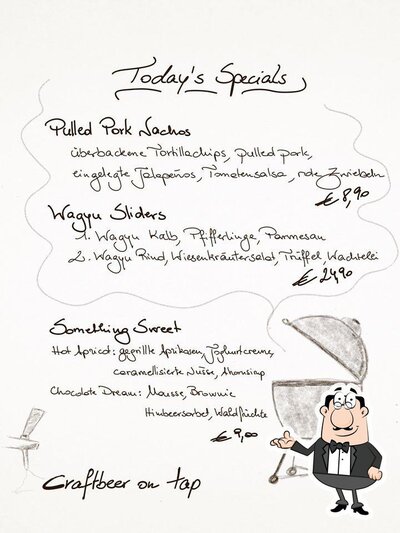 Today's Specials
Pulled Pork Nachos
überbackene Tortillachips, pulled pork,
eingelegte Jalapeños, Tomatensalsa, rote Zwiebeln
€ 8,90
Wagyu Sliders
1. Wagyu Kalb, Pfifferlinge, Parmesan
2. Wagyu Rind, Wiesenkräutersalat, Trüffel, Wachtelei
€ 24,90
Something Sweet
Hot Apricot: gegrillte Aprikosen, Joghurtcreme,
caramellisierte Nüsse, Ahornsirup
Chocolate Dream: Mousse, Brownie
Himbeersorbet, Waldfrüchte
€ 9,00
Craftbeer on tap